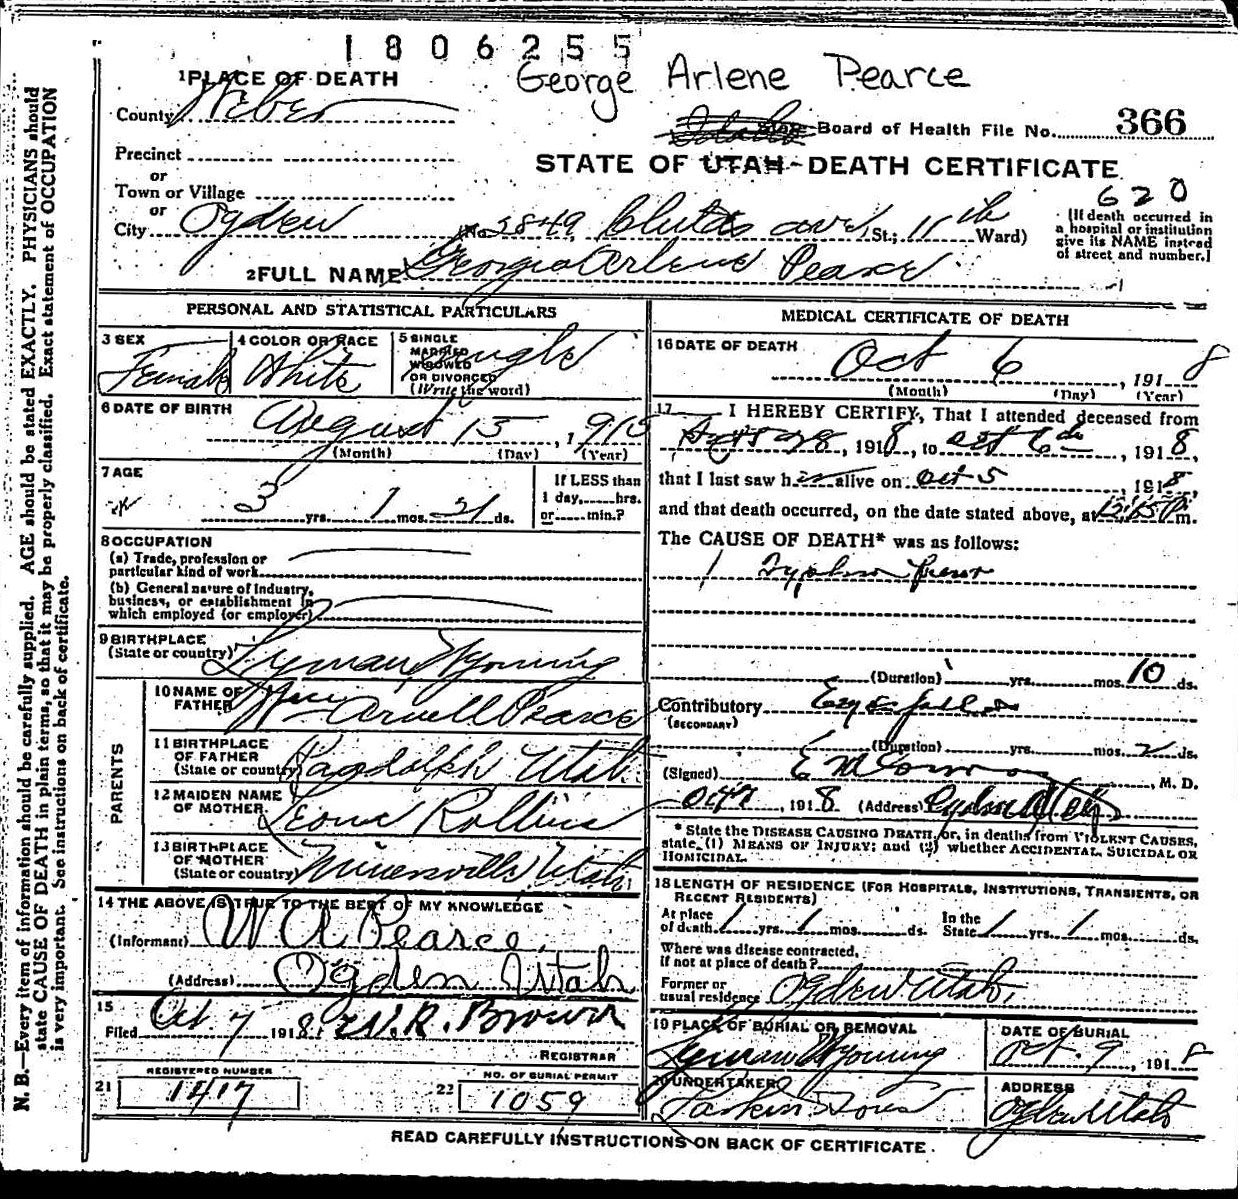 1806255
George Arlene Pearce
1 PLACE OF DEATH
County Weber
State Board of Health File No. 366
Precinct
STATE OF UTAH-DEATH CERTIFICATE
or
Town or Village
620
or
City Ogden (No. 2849, ave, St.; 11th Ward)
(If death occurred in
a hospital or institution
give its NAME instead
of street and number.)
2 FULL NAME Georgia Arlene Pearce
PERSONAL AND STATISTICAL PARTICULARS
3 SEX Female
4 COLOR OR RACE White
5 SINGLE
MARRIED
WIDOWED
OR DIVORCED
(Write the word) Single
6 DATE OF BIRTH August 15, 1915
(Month) (Day) (Year)
7 AGE
3 yrs. 1 mos. 21 ds.
If LESS than
1 day,......hrs.
or......min.?
8 OCCUPATION
(a) Trade, profession or
particular kind of work
(b) General nature of industry,
business, or establishment in
which employed (or employer)
9 BIRTHPLACE
(State or country) Lyman, Wyoming
PARENTS
10 NAME OF
FATHER Wm Arvell Pearce
11 BIRTHPLACE
OF FATHER
(State or country) Randolph Utah
12 MAIDEN NAME
OF MOTHER Leone Rollins
13 BIRTHPLACE
OF MOTHER
(State or country) Minersville Utah
14 THE ABOVE IS TRUE TO THE BEST OF MY KNOWLEDGE
(Informant) W A Pearce.
(Address) Ogden Utah
15
Filed Oct 7 1918 W. R. Brown
REGISTRAR
REGISTERED NUMBER
21 1417
NO. OF BURIAL PERMIT
22 1059
MEDICAL CERTIFICATE OF DEATH
16 DATE OF DEATH
Oct 6, 1918
(Month) (Day) (Year)
17 I HEREBY CERTIFY, That I attended deceased from
28, 1918, to Oct 6th, 1918,
that I last saw her alive on Oct 5 1918,
and that death occurred, on the date stated above, at m.
The CAUSE OF DEATH* was as follows:
(Duration) yrs. mos. 10 ds.
Contributory
(SECONDARY)
(Duration) yrs. mos. 2 ds.
(Signed) E M Conroy, M. D.
Oct 7, 1918 (Address) Ogden Utah
* State the DISEASE CAUSING DEATH, or, in deaths from VIOLENT CAUSES,
state (1) MEANS OF INJURY; and (2) whether ACCIDENTAL, SUICIDAL OR
HOMICIDAL.
18 LENGTH OF RESIDENCE (FOR HOSPITALS, INSTITUTIONS, TRANSIENTS, OR
RECENT RESIDENTS)
At place
of death 1 yrs. 1 mos. ds.
In the
State 1 yrs. 1 mos. ds.
Where was disease contracted,
if not at place of death?
Former or
usual residence Ogden Utah.
19 PLACE OF BURIAL OR REMOVAL
Lyman Wyoming
DATE OF BURIAL
Oct. 9, 1918
20 UNDERTAKER
Larkin & Sons
ADDRESS
Ogden Utah
READ CAREFULLY INSTRUCTIONS ON BACK OF CERTIFICATE.
N. B.—Every item of information should be carefully supplied. AGE should be stated EXACTLY. PHYSICIANS should
state CAUSE OF DEATH in plain terms, so that it may be properly classified. Exact statement of OCCUPATION
is very important. See instructions on back of certificate.